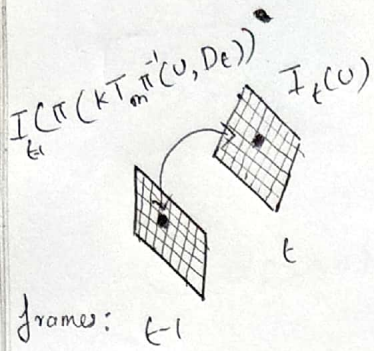 I_{t-1}(π(KT_m π^{-1}(U, D_t))
I_t(U)
t
frames: t-1